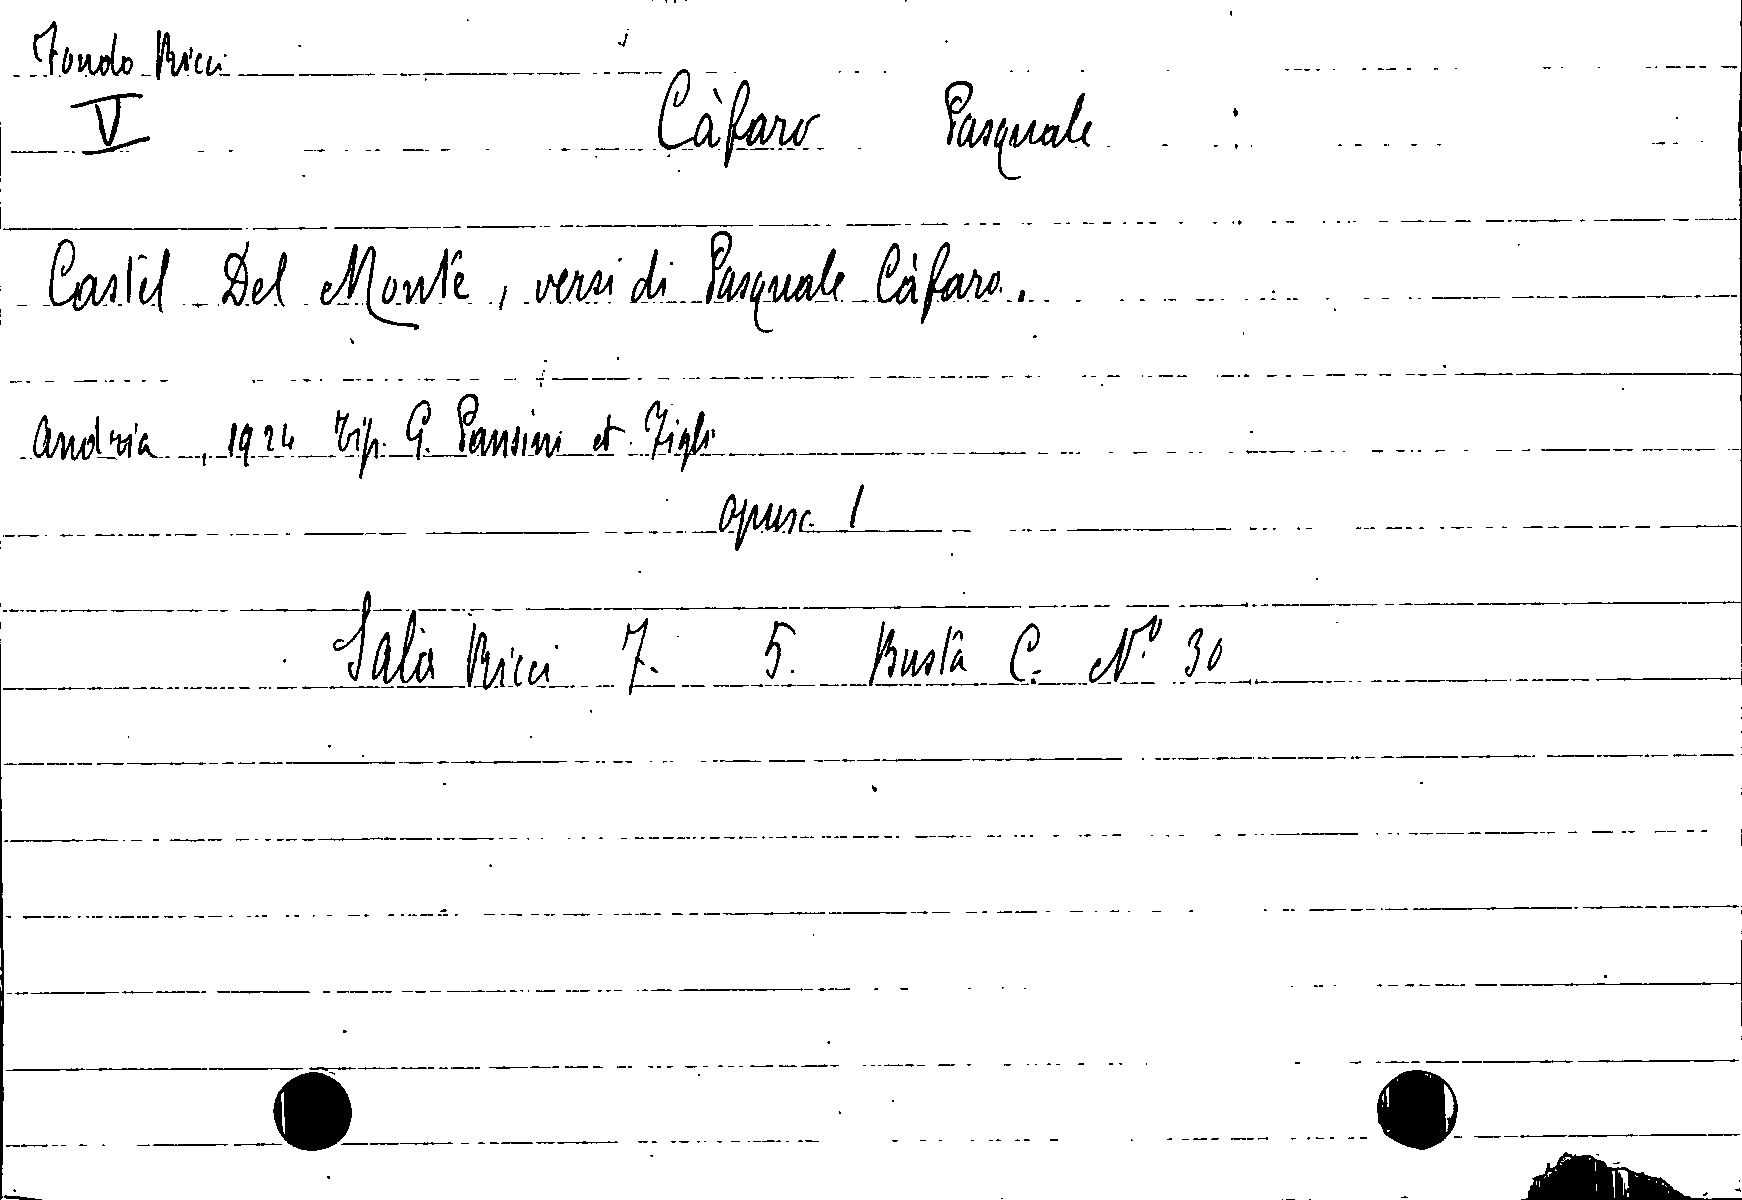 Fondo Ricci
V
Càfaro Pasquale
Castel Del Monte, versi di Pasquale Càfaro.
Andria, 1924 Tip. G. Pansini et Figli
opusc. 1
Sala Ricci 7. 5. Busta C. N.º 30